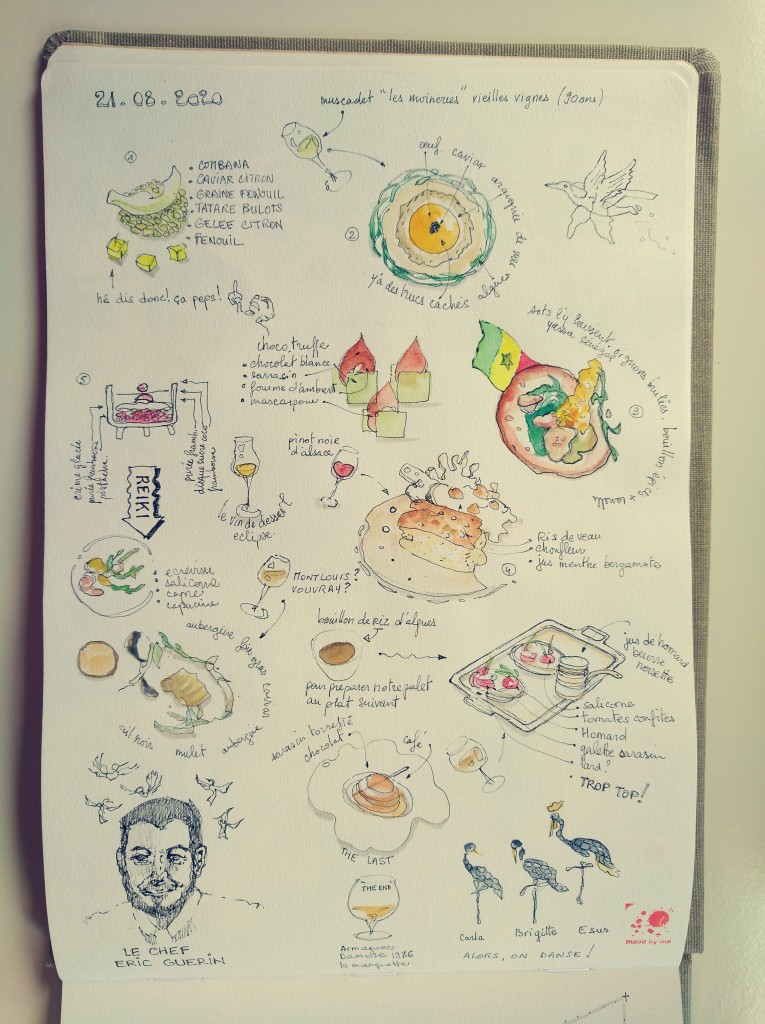 21.08.2020
muscadet "les moineries" vieilles vignes (90ans)
1
• COMBAWA
• CAVIAR CITRON
• GRAINE FENOUIL
• TATARE BULOTS
• GELEE CITRON
• FENOUIL
hé dis donc! ça peps!
2
œuf caviar araignée de mer
algues
y'a des trucs cachés
choco truffe
• chocolat blanc
• sarrasin
• fourme d'ambert
• mascarpone
sots l'y laissent, oignons brulés, bouillon épices
yassa sénégal
3
5
crème glacée
purée framboise
purée framb.
disque sucre coco
framboise
REIKI
le vin de dessert
eclipse
pinot noir
d'alsace
4
• Ris de veau
• choufleur
• jus menthe bergamote
• ecrevisse
• salicorne
• capre
• capucine
MONTLOUIS?
VOUVRAY?
bouillon de riz d'algues
pour préparer notre palet
au plat suivant!
jus de homard
beurre
noisette
• salicorne
• tomates confites
• Homard
• galette sarasin
• lard?
• TROP TOP!
aubergine foie gras caviar
ail noir mulet aubergine
sarasin torréfié
chocolat
café
THE LAST
THE END
Armagnac
1986
la marquette
LE CHEF
ERIC GUERIN
Carla
Brigitte
Esus
ALORS, ON DANSE!
made by me